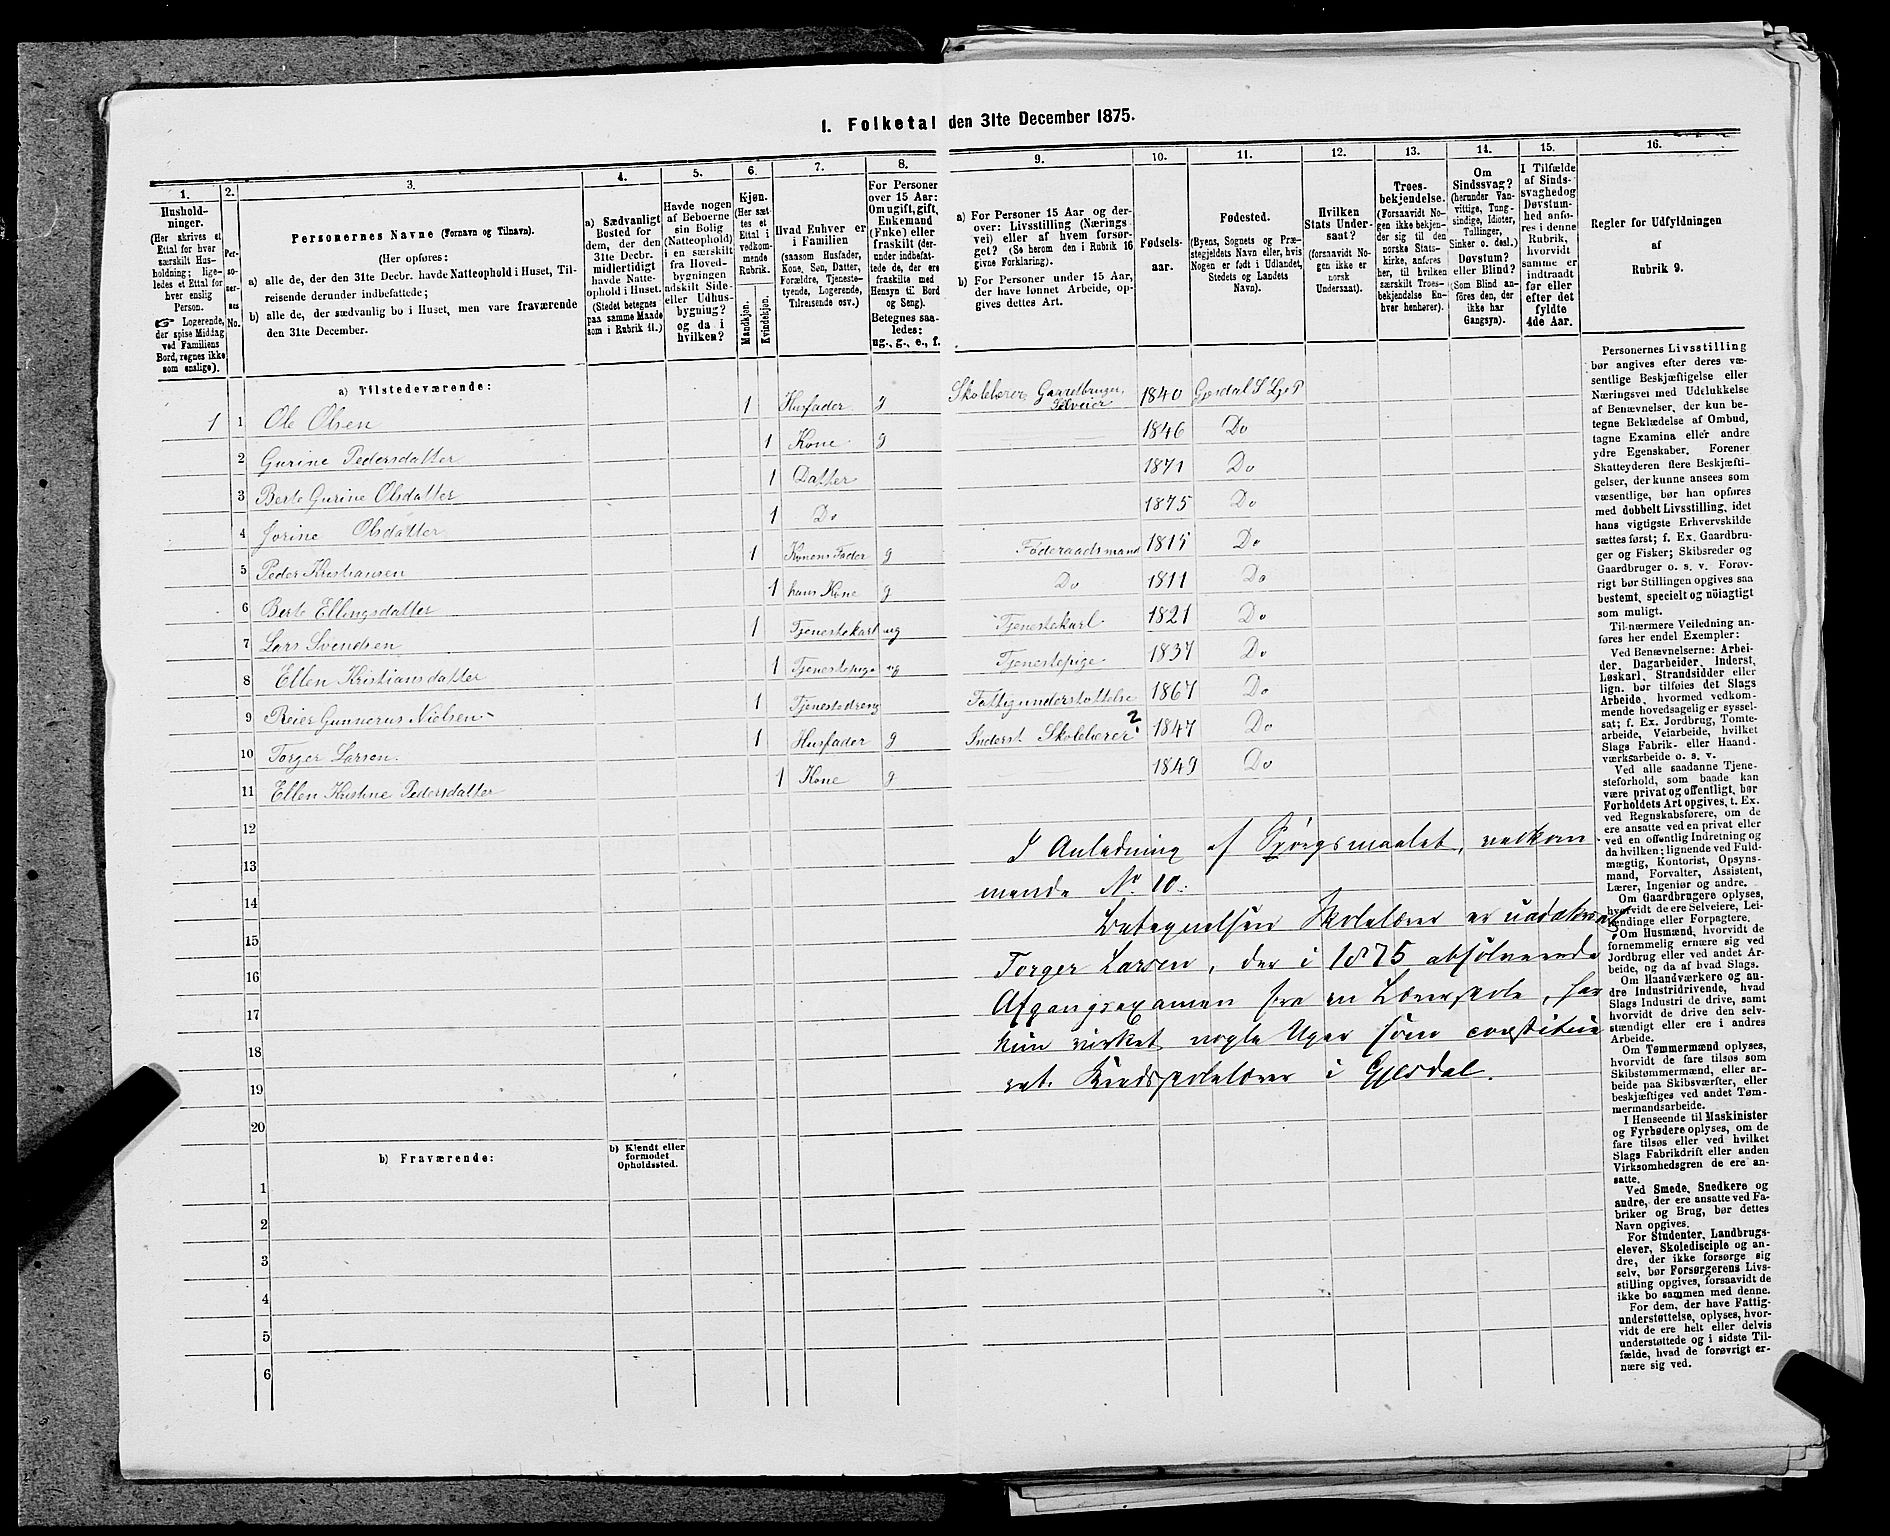 I. Folketal den 31te December 1875.
1. 2. 3. 4. 5. 6. 7. 8. 9. 10. 11. 12. 13. 14. 15. 16.
Hushold-
ninger.
(Her skrives et
Ettal for hver
særskilt Hus-
holdning; lige-
ledes et Ettal for
hver enslig
Person.
☞ Logerende,
der spise Middag
ved Familiens
Bord, regnes ikke
som enslige).
Per-
so-
ner-
nes
No.
Personernes Navne (Fornavn og Tilnavn).
(Her opføres:
a) alle de, der den 31te Decbr. havde Natteophold i Huset, Til-
reisende derunder indbefattede;
b) alle de, der sædvanlig bo i Huset, men vare fraværende
den 31te December.
a) Sædvanligt
Bosted for
dem, der den
31te Decbr.
midlertidigt
havde Natte-
ophold i Huset.
(Stedet betegnes
paa samme Maade
som i Rubrik 11.)
Havde nogen
af Beboerne
sin Bolig
(Natteophold)
i en særskilt
fra Hoved-
bygningen
adskilt Side-
eller Udhus-
bygning?
og da i
hvilken?
Kjøn.
(Her sæt-
tes et
Ettal i
vedkom-
mende
Rubrik.
Mandkjøn.
Kvindekjøn.
Hvad Enhver er
i Familien
(saasom Husfader,
Kone, Søn, Datter,
Forældre, Tjeneste-
tyende, Logerende,
Tilreisende osv.)
For Personer
over 15 Aar:
Om ugift, gift,
Enkemand
(Enke) eller
fraskilt (der-
under indbefat-
tede de, der ere
fraskilte med
Hensyn til Bord
og Seng).
Betegnes saa-
ledes:
ug., g., e., f.
a) For Personer 15 Aar og der-
over: Livsstilling (Nærings-
vei) eller af hvem forsør-
get? (Se herom den i Rubrik 16
givne Forklaring).
b) For Personer under 15 Aar,
der have lønnet Arbeide, op-
gives dettes Art.
Fødsels-
aar.
Fødested.
(Byens, Sognets og Præ-
stegjeldets Navn eller, hvis
Nogen er født i Udlandet,
Stedets og Landets
Navn).
Hvilken
Stats Under-
saat?
(forsaavidt No-
gen ikke er
norsk
Undersaat).
Troes-
bekjendelse.
(Forsaavidt No-
gen ikke bekjen-
der sig til den
norske Stats-
kirke, anføres
her, til hvilken
særskilt Troes-
bekjendelse En-
hver henhører).
Om
Sindssvag?
(herunder Van-
vittige, Tung-
sindige, Idioter,
Tullinger,
Sinker o. desl.)
Døvstum?
eller Blind?
(Som Blind an-
føres den, der
ikke har
Gangsyn).
I Tilfælde
af Sinds-
svaghed og
Døvstum-
hed anfø-
res i denne
Rubrik,
hvorvidt
samme er
indtraadt
før eller
efter det
fyldte
4de Aar.
Regler for Udfyldningen
af
Rubrik 9.
a) Tilstedeværende:
1 1 Ole Olsen 1 Husfader g Skolelærer, Gaardbruger, Selveier 1840 Gjesdal S Lye P
2 Gurine Pedersdatter 1 Kone g 1846 Do
3 Berte Gurine Olsdatter 1 Datter 1871 Do
4 Jorine Olsdatter 1 Do 1875 Do
5 Peder Kristiansen 1 Konens Fader g Føderaadsmand 1815 Do
6 Berte Ellingsdatter 1 hans Kone g Do 1811 Do
7 Lars Svendsen 1 Tjenestekarl ug Tjenestekarl 1821 Do
8 Ellen Kristiansdatter 1 Tjenestepige ug Tjenestepige 1837 Do
9 Reier Gunnerus Nielsen 1 Tjenestedreng Fattigunderstøttelse 1867 Do
10 Torger Larsen 1 Husfader g Inderst Skolelærer ? 1847 Do
11 Ellen Kristine Pedersdatter 1 Kone g 1849 Do
12
13
14
15
16
17
18
19
20
I Anledning af Spørgsmaalet, vedkom-
mende No 10:
Betegnelsen Skolelærer er
Torger Larsen, der i 1875 absolverede
Afgangsexamen fra en Lærerskole, har
kun virket nogle Uger som constitue-
ret Kredsskolelærer i Gjesdal.
b) Fraværende:
b) Kjendt eller
formodet
Opholdssted.
1
2
3
4
5
6
Personernes Livsstilling
bør angives efter deres væ-
sentlige Beskjæftigelse eller
Næringsvei med Udelukkelse
af Benævnelser, der kun be-
tegne Beklædelse af Ombud,
tagne Examina eller andre
ydre Egenskaber. Forener
Skatteyderen flere Beskjæfti-
gelser, der kunne ansees som
væsentlige, bør han opføres
med dobbelt Livsstilling, idet
hans vigtigste Erhvervskilde
sættes først; f. Ex. Gaardbru-
ger og Fisker; Skibsreder og
Gaardbruger o. s. v. Forøv-
rigt bør Stillingen opgives saa
bestemt, specielt og nöiagtigt
som muligt.
Til nærmere Veiledning an-
føres her endel Exempler:
Ved Benævnelserne: Arbei-
der, Dagarbeider, Inderst,
Løskarl, Strandsidder eller
lign. bør tilføies det Slags
Arbeide, hvormed vedkom-
mende hovedsagelig er syssel-
sat; f. Ex. Jordbrug, Tomte-
arbeide, Veiarbeide, hvilket
Slags Fabrik- eller Haand-
værksarbeide o. s. v.
Ved alle saadanne Tjene-
steforhold, som baade kan
være privat og offentligt, bør
Forholdets Art opgives, t. Ex.
ved Regnskabsførere, om de
ere ansatte ved en privat eller
ved en offentlig Indretning og
da hvilken; lignende ved Fuld-
mægtig, Kontorist, Opsyns-
mand, Forvalter, Assistent,
Lærer, Ingeniør og andre.
Om Gaardbrugere oplyses,
hvorvidt de ere Selveiere, Lei-
lændinge eller Forpagtere.
Om Husmænd, hvorvidt de
fornemmelig ernære sig ved
Jordbrug eller ved andet Ar-
beide, og da af hvad Slags.
Om Haandværkere og an-
dre Industridrivende, hvad
Slags Industri de drive, samt
hvorvidt de drive den selv-
stændigt eller ere i andres
Arbeide.
Om Tømmermænd oplyses,
hvorvidt de fare tilsøs som
Skibstømmermænd, eller ar-
beide paa Skibsværfter, eller
beskjæftiges ved andet Tøm-
mermandsarbeide.
I Henseende til Maskinister
og Fyrbødere oplyses, om de
fare tilsøs eller ved hvilket
Slags Fabrikdrift eller anden
Virksomhedsgren de ere an-
satte.
Ved Smede, Snedkere og
andre, der ere ansatte ved Fa-
briker og Brug, bør dettes
Navn opgives.
For Studenter, Landbrugs-
elever, Skoledisciple og an-
dre, der ikke forsørge sig
selv, bør Forsørgerens Livs-
stilling opgives, forsaavidt de
ikke bo sammen med denne.
For dem, der have Fattig-
understøttelse, oplyses, hvor-
vidt de ere helt eller delvis
understøttede og i sidste Til-
fælde, hvad de forøvrigt er-
nære sig ved.